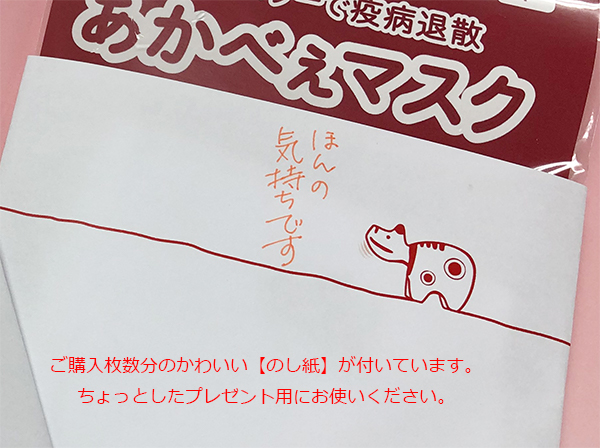 で疫病退散
あかべぇマスク
ほんの
気持ちです
ご購入枚数分のかわいい【のし紙】が付いています。
ちょっとしたプレゼント用にお使いください。